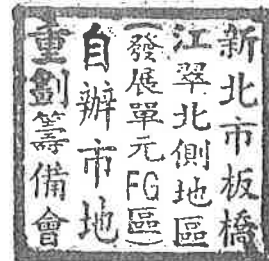 新北市板橋
江翠北側地區
(發展單元FG區)
自辦市地
重劃籌備會